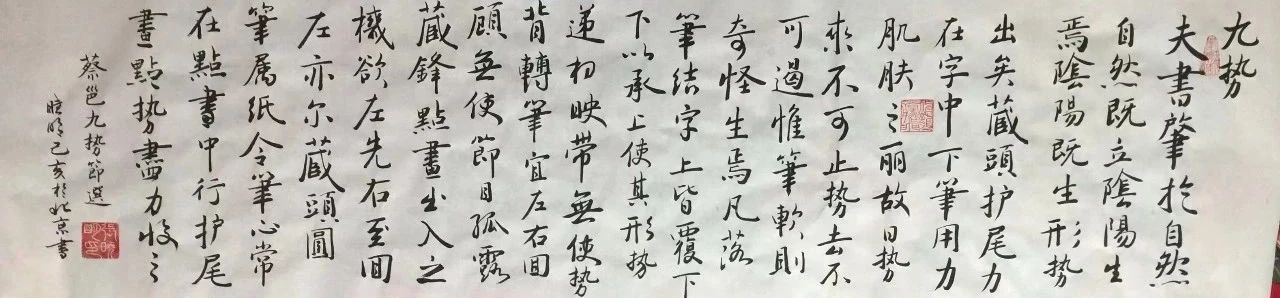 九势
夫書肇於自然
自然既立陰陽生
焉陰陽既生形势
出矣藏頭护尾力
在字中下筆用力
肌肤之丽故曰势
來不可止势去不
可遏惟筆軟則
奇怪生焉凡落
筆结字上皆覆下
下以承上使其形势
递相映带無使势
背轉筆宜左右回
顾無使節目孤露
藏鋒點畫出入之
機欲左先右至回
左亦尔藏頭圓
筆属纸令筆心常
在點畫中行护尾
畫點势盡力收之
蔡邕九势節選
己亥於北京書